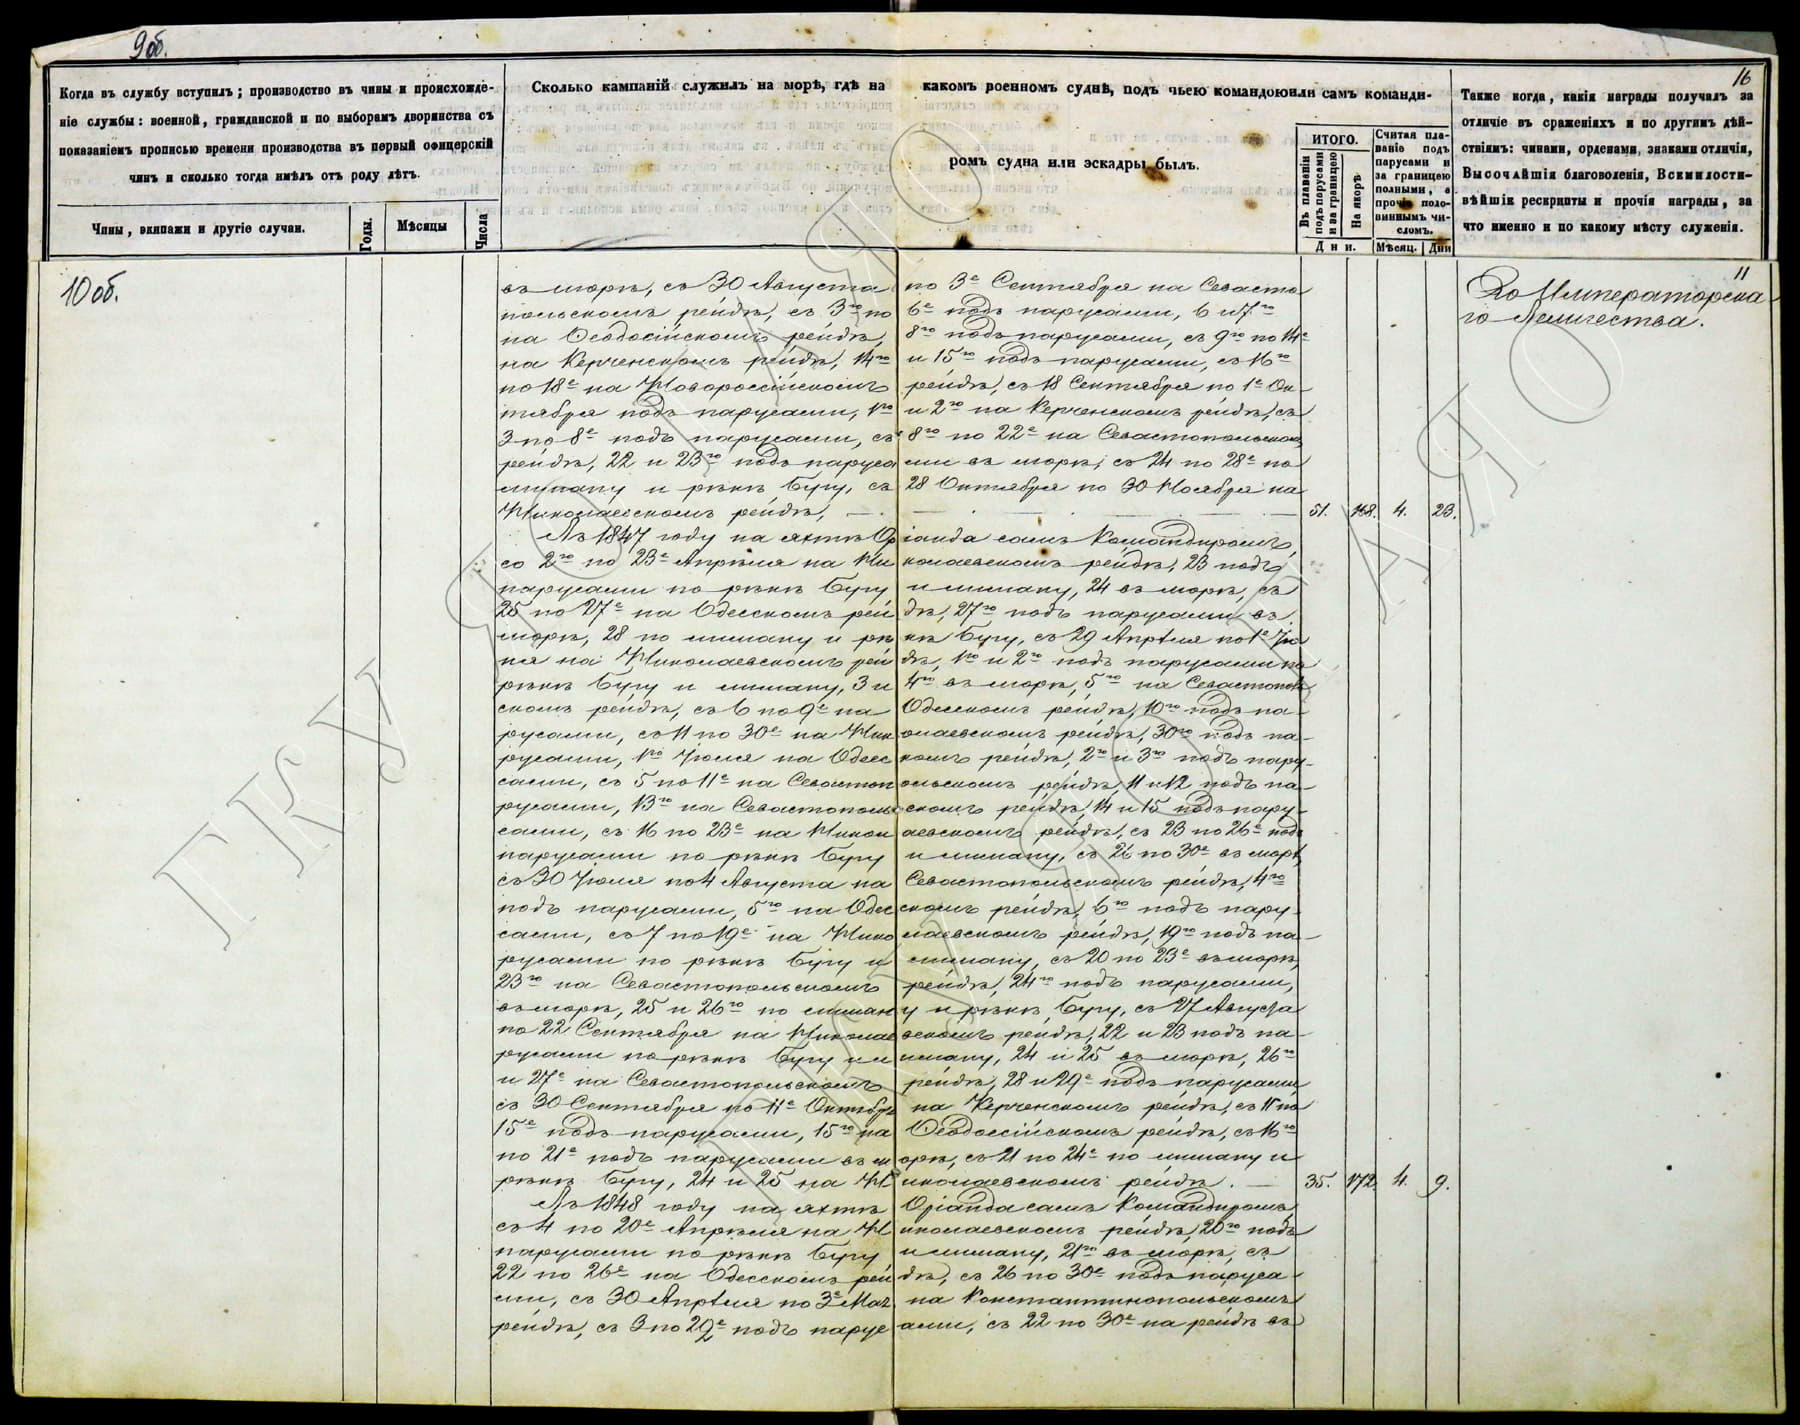 9об.
16
Когда въ службу вступилъ; производство въ чины и происхожде-
ніе службы: военной, гражданской и по выборамъ дворянства съ
показаніемъ прописью времени производства въ первый офицерскій
чинъ и сколько тогда имѣлъ отъ роду лѣтъ.
Чины, экипажи и другіе случаи.
Годы.
Мѣсяцы
Числа
Сколько кампаній служилъ на морѣ, гдѣ на какомъ военномъ суднѣ, подъ чьею командою или самъ команди-
ромъ судна или эскадры былъ.
ИТОГО.
Въ плаваніи подъ парусами и за границею
На якорѣ
Дни.
Считая пла-
ваніе подъ
парусами и
за границею
полными, а
прочіе поло-
виннымъ чи-
сломъ.
Мѣсяц. Дни
Также когда, какія награды получалъ за
отличіе въ сраженіяхъ и по другимъ дѣй-
ствіямъ: чинами, орденами, знаками отличія,
Высочайшія благоволенія, Всемилости-
вѣйшіе рескрипты и прочія награды, за
что именно и по какому мѣсту служенія.
10об.
11
Его Императорска-
го Величества.
въ морѣ, съ 30 Августа по 3е Сентября на Севасто-
польскомъ рейдѣ, съ 3го по 6е подъ парусами, 6 и 7го
на Ѳеодосійскомъ рейдѣ, 8го подъ парусами, съ 9го по 14е
на Керченскомъ рейдѣ, 14го и 15го подъ парусами, съ 16го
по 18е на Новороссійскомъ рейдѣ, съ 18 Сентября по 1е Ок-
тября подъ парусами, 1го и 2го на Керченскомъ рейдѣ, съ
3 по 8е подъ парусами, съ 8го по 22е на Севастопольскомъ
рейдѣ, 22 и 23го подъ парусами въ морѣ, съ 24 по 28е по
лиману и рѣкѣ Бугу, съ 28 Октября по 30 Ноября на
Николаевскомъ рейдѣ, 51. 168. 4. 23.
Въ 1847 году на яхтѣ Оріанда самъ Командиромъ,
со 2го по 23е Апрѣля на Николаевскомъ рейдѣ, 23 подъ
парусами по рѣкѣ Бугу и лиману, 24 въ морѣ, съ
25 по 27е на Одесскомъ рейдѣ, 27го подъ парусами въ
морѣ, 28 по лиману и рѣкѣ Бугу, съ 29 Апрѣля по 1е Iю-
ня на Николаевскомъ рейдѣ, 1го и 2го подъ парусами по
рѣкѣ Бугу и лиману, 3 и 4го въ морѣ, 5го на Севастополь-
скомъ рейдѣ, съ 6 по 9е на Одесскомъ рейдѣ, 10го подъ па-
русами, съ 11 по 30е на Николаевскомъ рейдѣ, 30го подъ па-
русами, 1го Iюля на Одесскомъ рейдѣ, 2го и 3го подъ пару-
сами, съ 5 по 11е на Севастопольскомъ рейдѣ, 11 и 12 подъ па-
русами, 13го на Севастопольскомъ рейдѣ, 14 и 15 подъ пару-
сами, съ 16 по 23е на Николаевскомъ рейдѣ, съ 23 по 26е подъ
парусами по рѣкѣ Бугу и лиману, съ 26 по 30е въ морѣ,
съ 30 Iюля по 4 Августа на Севастопольскомъ рейдѣ, 4го
подъ парусами, 5го на Одесскомъ рейдѣ, 6го подъ пару-
сами, съ 7 по 19е на Николаевскомъ рейдѣ, 19го подъ па-
русами по рѣкѣ Бугу и лиману, съ 20 по 23е въ морѣ,
23го на Севастопольскомъ рейдѣ, 24го подъ парусами,
въ морѣ, 25 и 26го по лиману и рѣкѣ Бугу, съ 27 Августа
по 22 Сентября на Николаевскомъ рейдѣ, 22 и 23 подъ па-
русами по рѣкѣ Бугу и лиману, 24 и 25 въ морѣ, 26го
и 27е на Севастопольскомъ рейдѣ, 28 и 29е подъ парусами,
съ 30 Сентября по 11е Октября на Керченскомъ рейдѣ, съ 11 по
15е подъ парусами, 15го на Ѳеодоссійскомъ рейдѣ, съ 16го
по 21е подъ парусами въ морѣ, съ 21 по 24е по лиману и
рѣкѣ Бугу, 24 и 25 на Николаевскомъ рейдѣ. 35. 172. 4. 9.
Въ 1848 году на яхтѣ Оріанда самъ Командиромъ,
съ 4 по 20е Апрѣля на Николаевскомъ рейдѣ, 20го подъ
парусами по рѣкѣ Бугу и лиману, 21го въ морѣ, съ
22 по 26е на Одесскомъ рейдѣ, съ 26 по 30е подъ паруса-
ми, съ 30 Апрѣля по 3е Мая на Константинопольскомъ
рейдѣ, съ 3 по 22е подъ парусами, съ 22 по 30е на рейдѣ въ
ГКУ